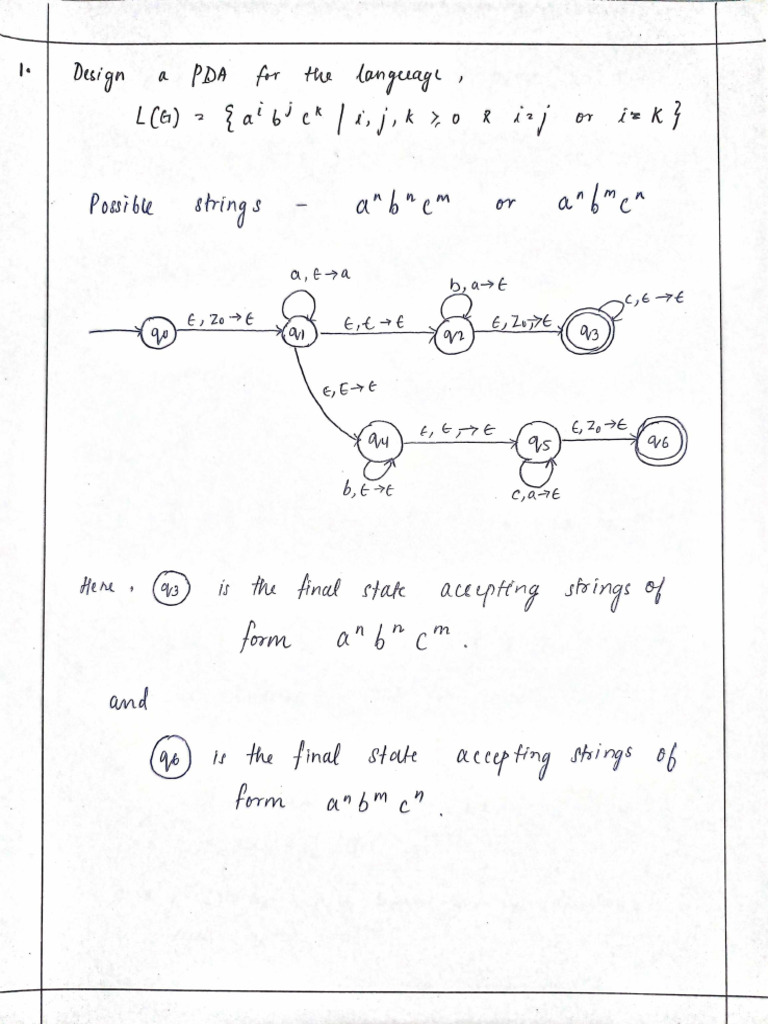 1. Design a PDA for the language,
L(G) = { aⁱ bʲ cᵏ | i, j, k ≥ 0 & i=j or i=k }
Possible strings - aⁿbⁿcᵐ or aⁿbᵐcⁿ
a, ε→a
b, a→ε
c, ε→ε
q0 ε, Z₀→ε q1 ε, ε→ε q2 ε, Z₀→ε q3
ε, ε→ε
q4 ε, ε,→ε q5 ε, Z₀→ε q6
b, ε→ε
c, a→ε
Here, q3 is the final state accepting strings of
form aⁿ bⁿ cᵐ.
and
q6 is the final state accepting strings of
form aⁿ bᵐ cⁿ.